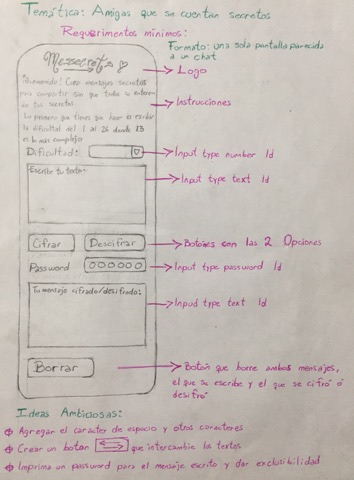 Temática: Amigas que se cuentan secretos
Requerimientos mínimos:
Formato: una sola pantalla parecida
a un chat
Logo
¡Bienvenida! Crea mensajes secretos
para compartir sin que nadie se entere
de tus secretos
Lo primero que tienes que hacer es escribir
la dificultad del 1 al 26 donde 13
es lo más complejo
Instrucciones
Dificultad:
Input type number Id
Escribe tu texto:
Input type text Id
Cifrar
Descifrar
Botones con las 2 Opciones
Password
Input type password Id
Tu mensaje cifrado/descifrado:
Input type text Id
Borrar
Botón que borre ambos mensajes,
el que se escribe y el que se cifró ó
desifró
Ideas Ambiciosas:
Agregar el caracter de espacio y otros caracteres
Crear un botón que intercambie los textos
Imprima un password para el mensaje escrito y dar exclusibilidad